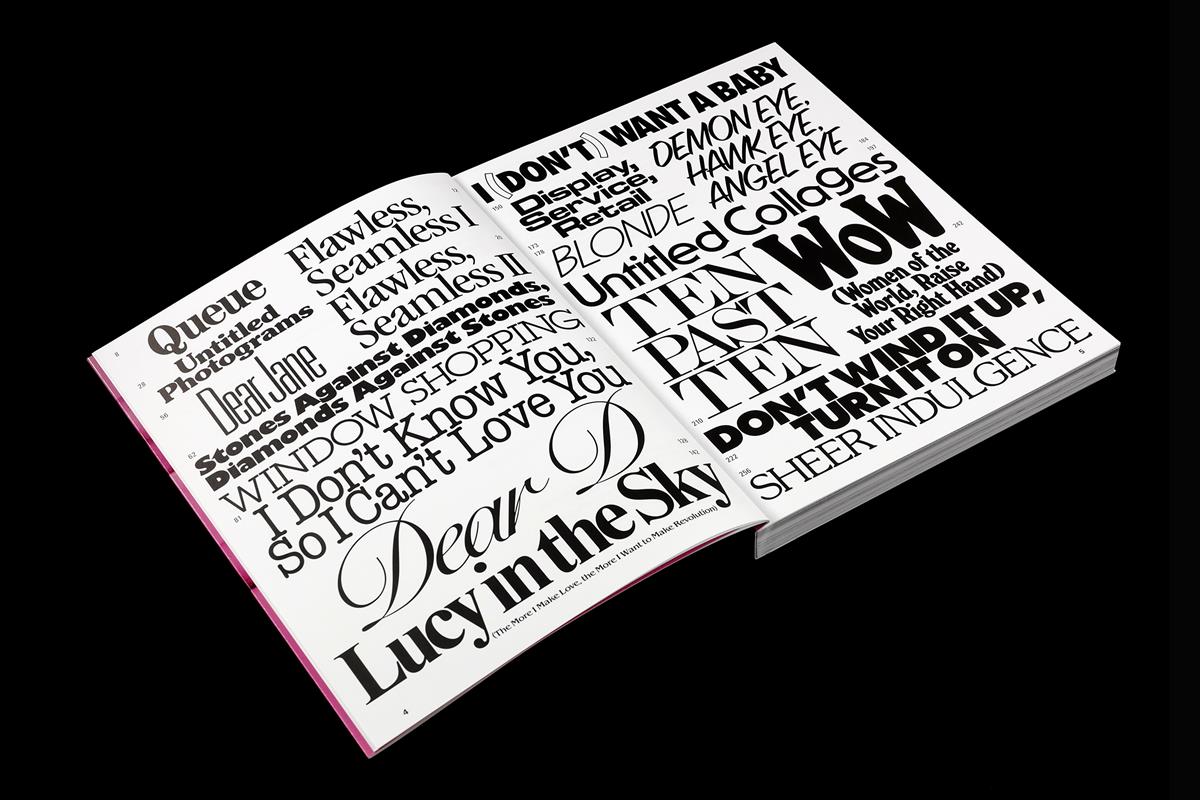 8
Queue
12
Flawless,
Seamless I
28
Untitled
Photograms
Flawless,
Seamless II
56
Dear Jane
62
Stones Against Diamonds,
Diamonds Against Stones
81
WINDOW SHOPPING
122
I Don't Know You,
So I Can't Love You
128
Dear D
142
Lucy in the Sky
(The More I Make Love, the More I Want to Make Revolution)
4
I (DON'T) WANT A BABY
150
Display,
Service,
Retail
DEMON EYE,
HAWK EYE,
ANGEL EYE
184
197
173
178
BLONDE
Untitled Collages
TEN
PAST
TEN
210
WOW
242
(Women of the
World, Raise
Your Right Hand)
222
DON'T WIND IT UP,
TURN IT ON
256
SHEER INDULGENCE
5